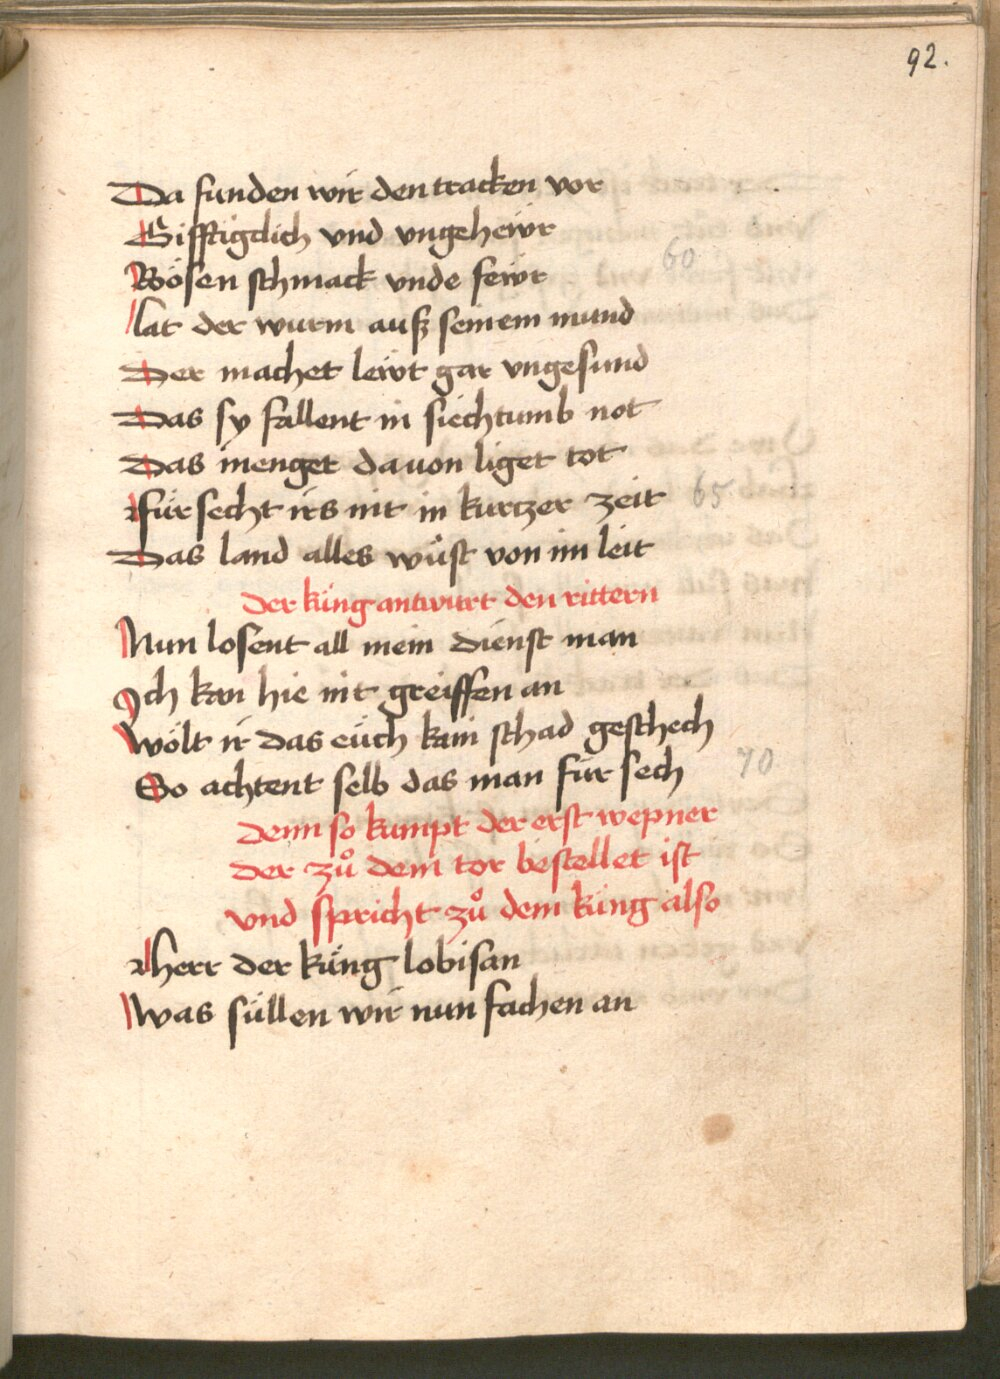 92.
Da funden wir den tracken vor
Gifftigclich vnd vngehewr
60
Bösen schmack vnde fewr
lat der wurm auß seinem mund
Der machet lewt gar vngesund
Das sy fallent in siechtumb not
Das menger dauon liget tot
Für secht irs nit in kurtzer zeit
65
Das land alles wüst von im leit
Der küng antwurt den rittern
Nun losent all mein dienst man
Ich kan hie nit greiffen an
Wölt ir das eüch kain schad geschech
So achtent selb das man für sech
70
Denn so kumpt der erst wepner
der zů dem tor bestellet ist
vnd spricht zů dem küng also
herr der küng lobisan
Was süllen wir nun fachen an